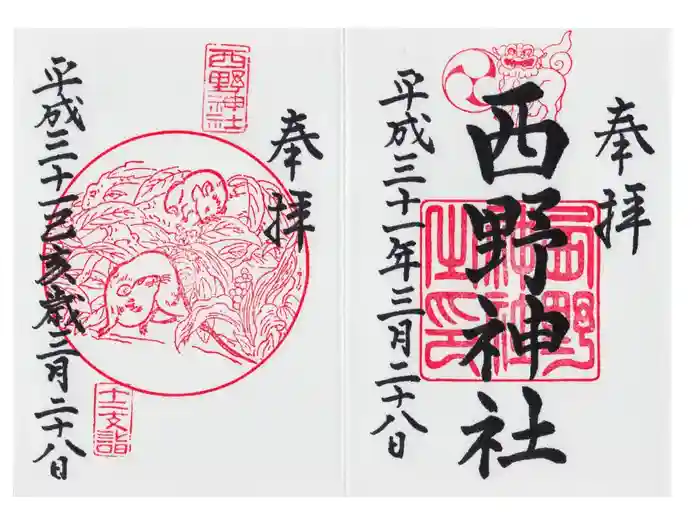 奉拝
西野神社
西野
神社
之印
平成三十一年三月二十八日
奉拝
西野神社
十二支詣
平成三十一己亥歳三月二十八日